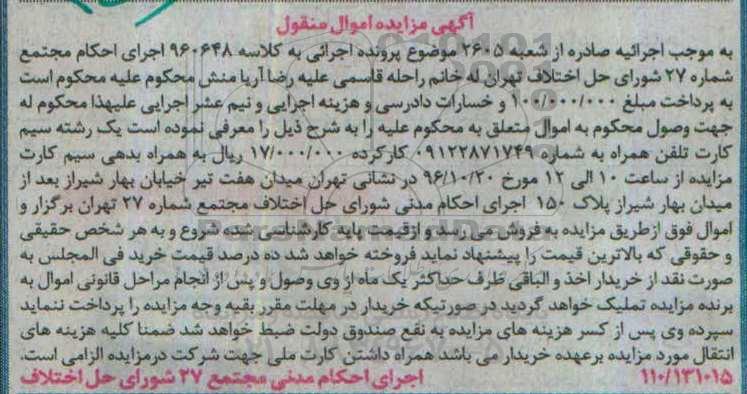 آگهی مزایده اموال منقول
به موجب اجرائیه صادره از شعبه ۲۶۰۵ موضوع پرونده اجرائی به کلاسه ۹۶۰۶۴۸ اجرای احکام مجتمع
شماره ۲۷ شورای حل اختلاف تهران له خانم راحله قاسمی علیه رضا آریا منش محکوم علیه محکوم است
به پرداخت مبلغ ۱۰۰/۰۰۰/۰۰۰ و خسارات دادرسی و هزینه اجرایی و نیم عشر اجرایی علیهذا محکوم له
جهت وصول محکوم به اموال متعلق به محکوم علیه را به شرح ذیل را معرفی نموده است یک رشته سیم
کارت تلفن همراه به شماره ۰۹۱۲۲۸۷۱۷۴۹ کارکرده ۱۷/۰۰۰/۰۰۰ ریال به همراه بدهی سیم کارت
مزایده از ساعت ۱۰ الی ۱۲ مورخ ۹۶/۱۰/۲۰ در نشانی تهران میدان هفت تیر خیابان بهار شیراز بعد از
میدان بهار شیراز پلاک ۱۵۰ اجرای احکام مدنی شورای حل اختلاف مجتمع شماره ۲۷ تهران برگزار و
اموال فوق ازطریق مزایده به فروش می رسد و ازقیمت پایه کارشناسی شده شروع و به هر شخص حقیقی
و حقوقی که بالاترین قیمت را پیشنهاد نماید فروخته خواهد شد ده درصد قیمت خرید فی المجلس به
صورت نقد از خریدار اخذ و الباقی ظرف حداکثر یک ماه از وی وصول و پس از انجام مراحل قانونی اموال به
برنده مزایده تملیک خواهد گردید در صورتیکه خریدار در مهلت مقرر بقیه وجه مزایده را پرداخت ننماید
سپرده وی پس از کسر هزینه های مزایده به نفع صندوق دولت ضبط خواهد شد ضمنا کلیه هزینه های
انتقال مورد مزایده برعهده خریدار می باشد همراه داشتن کارت ملی جهت شرکت درمزایده الزامی است.
۱۱۰/۱۳۱۰۱۵ اجرای احکام مدنی مجتمع ۲۷ شورای حل اختلاف